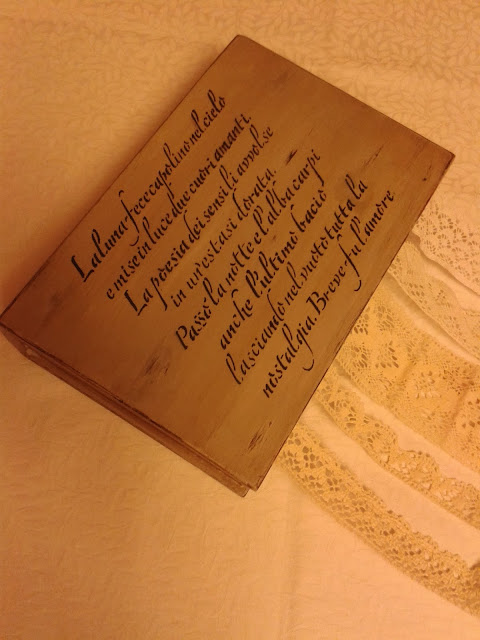 La luna fece capolino nel cielo
e mise in luce due cuori amanti.
La poesia dei sensi li avvolse
in un'estasi dorata.
Passò la notte e l'alba carpì
anche l'ultimo bacio
lasciando nel vuoto tutta la
nostalgia. Breve fu l'amore